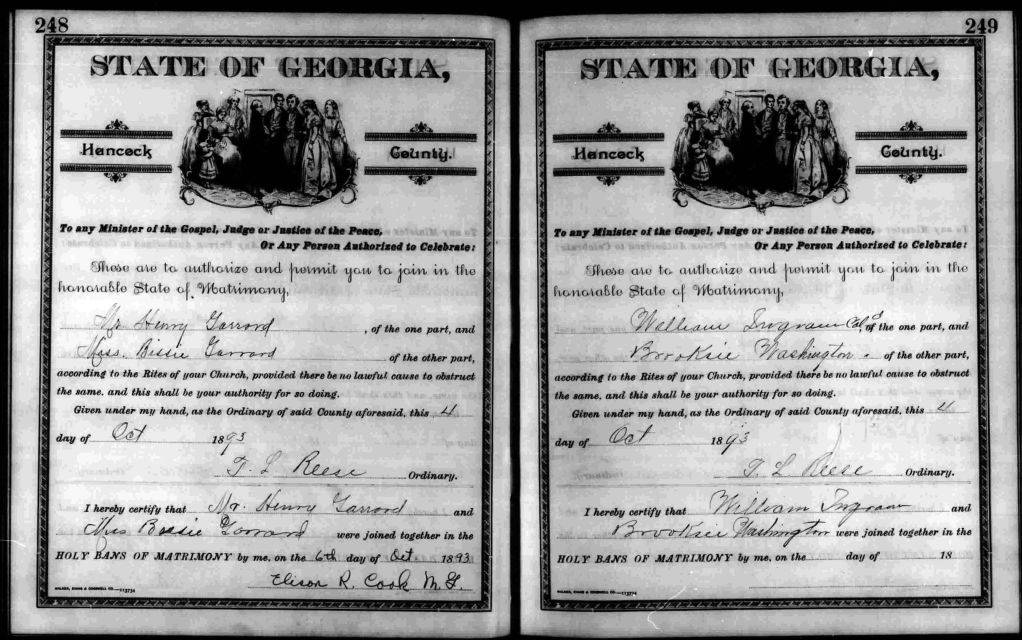 248
STATE OF GEORGIA,
Hancock County.
To any Minister of the Gospel, Judge or Justice of the Peace,
Or Any Person Authorized to Celebrate:
These are to authorize and permit you to join in the
honorable State of Matrimony,
Mr Henry Garrard , of the one part, and
Miss. Bissie Garrard of the other part,
according to the Rites of your Church, provided there be no lawful cause to obstruct
the same, and this shall be your authority for so doing.
Given under my hand, as the Ordinary of said County aforesaid, this 4
day of Oct 1893
T. L Reese Ordinary.
I hereby certify that Mr. Henry Garrard and
Miss Bessie Garrard were joined together in the
HOLY BANS OF MATRIMONY by me, on the 6th day of Oct 1893
Elison R. Cook M. G.
249
STATE OF GEORGIA,
Hancock County.
To any Minister of the Gospel, Judge or Justice of the Peace,
Or Any Person Authorized to Celebrate:
These are to authorize and permit you to join in the
honorable State of Matrimony,
William Ingram Cold of the one part, and
Brooksie Washington . of the other part,
according to the Rites of your Church, provided there be no lawful cause to obstruct
the same, and this shall be your authority for so doing.
Given under my hand, as the Ordinary of said County aforesaid, this 4
day of Oct 1893
T. L Reese Ordinary.
I hereby certify that William Ingram and
Brooksie Washington were joined together in the
HOLY BANS OF MATRIMONY by me, on the day of 18